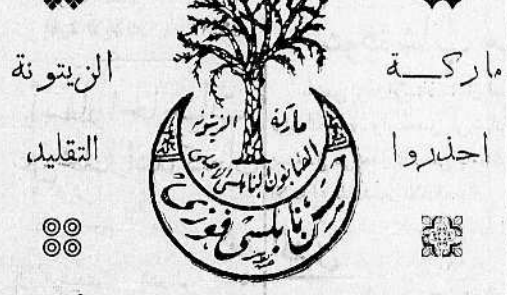 ماركـــة الزيتونة
احذروا التقليد
ماركة الزيتونه
الصابون النابلسي الاصلي
حسن نابلسي فوزي